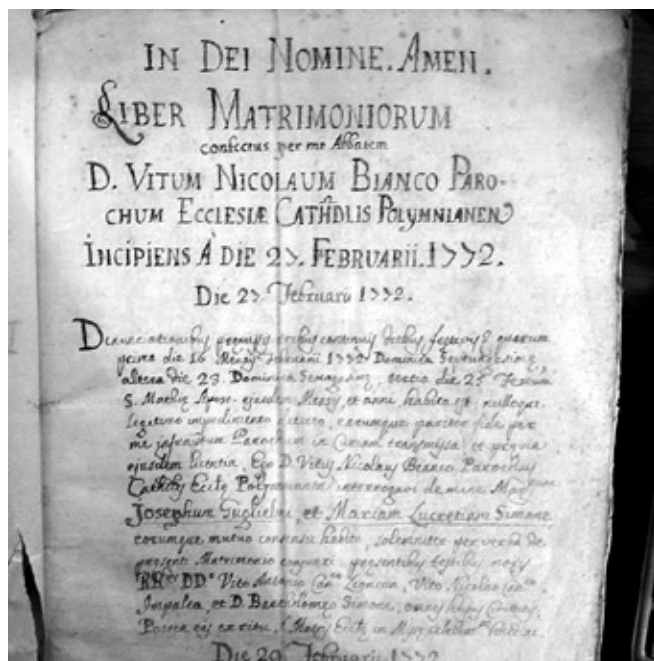 IN DEI NOMINE. AMEN.
LIBER MATRIMONIORUM
confectus per me Abbatem
D. VITUM NICOLAUM BIANCO PARO-
CHUM ECCLESIÆ CATHDLIS POLYMNIANEN
INCIPIENS À DIE 27. FEBRUARII. 1772.
Die 27 Februarii 1772.
Denunciationibus premissis tribus continuis diebus festivis, quarum
prima die 16 Mensis Februarii 1772 Dominica
altera die 23. Dominica tertia die 25 Festum
S. Mathiæ ejusdem Mensis, et anni habita est, nulloque
legitimo impedimento detecto, eorumque pariter fide per
me infrascriptum Parochum in Curiam transmissa, et prævia
ejusdem licentia, Ego D. Vitus Nicolaus Bianco Parochus
Polymnianen interrogavi
Josephum Guglielmi, et Mariam Lucretiam Simone
eorumque mutuo consensu habito, solemniter per verba de
presenti Matrimonio conjunxi, presentibus testibus notis
RR. DD. Vito Antonio Can. Vito Nicolao Can.
Impalea, et D. Bartholomeo Simone, omnes hujus Civitatis,
Postea eis ex ritu S. Matris Eccl. in
Die 29 Februarii 1772